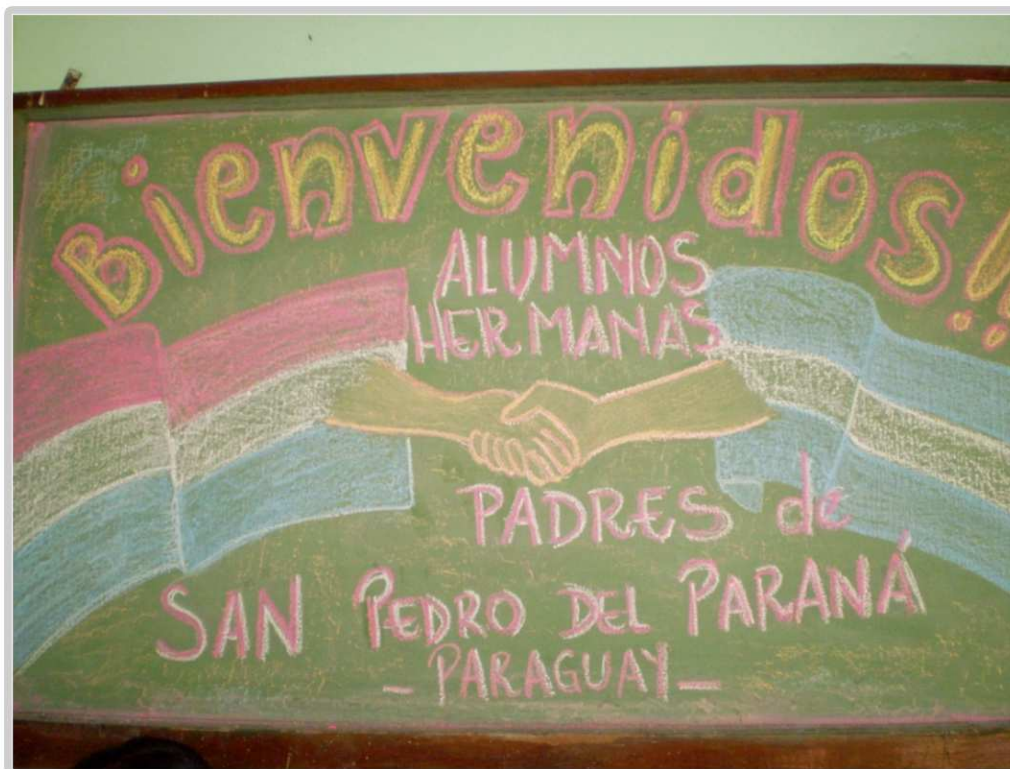 Bienvenidos!!
ALUMNOS
HERMANAS
PADRES de
SAN PEDRO DEL PARANÁ
- PARAGUAY -